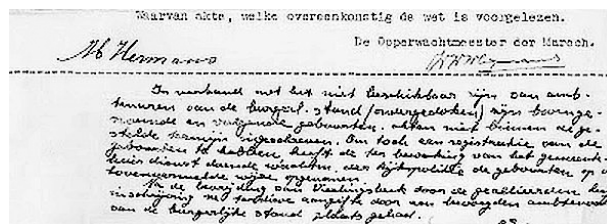 Waarvan akte, welke overeenkomstig de wet is voorgelezen.
De Opperwachtmeester der Marech.
Hermans
In verband met het niet beschikbaar zijn van amb-
tenaren van de burgerl. stand (ondergedoken) zijn boenge-
noemde en volgende geboorten akten niet binnen de ge-
stelde termijn ingeschreven. Om toch een registratie van de
geboorten te hebben heeft de ter bewaking van het gemeente-
huis dienst doende wachtm. der de geboorten op
bovenvermelde wijze opgenomen.
Na de bevrijding van Vierlingsbeek door de geallieerden
inschrijving na aangifte door een bevoegden ambtenaar
van de burgerlijke stand plaats gehad.